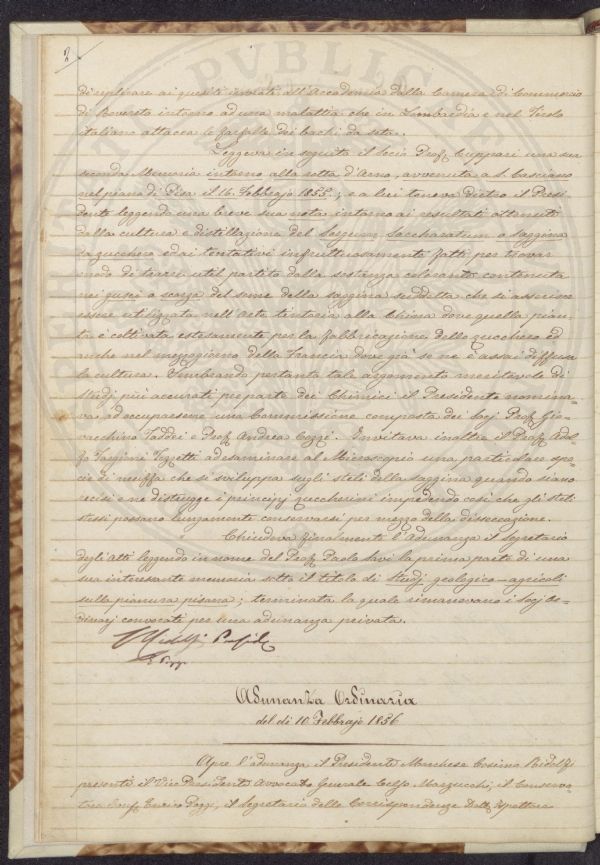 2
di replicare ai quesiti inviati all'Accademia dalla Camera di Commercio
di Rovereto intorno ad una malattia che in Lombardia e nel Tirolo
italiano attacca le farfalle dei bachi da seta.
Leggeva in seguito il Socio Prof. Cuppari una sua
seconda Memoria intorno alla rotta d'Arno, avvenuta a S. Casciano
nel piano di Pisa il 16. Febbrajo 1855.; e a lui teneva dietro il Presi-
dente leggendo una breve sua nota intorno ai resultati ottenuti
dalla cultura e distillazione del Sorgum Saccharatum o saggina
da zucchero ed ai tentativi infruttuosamente fatti per trovar
modo di trarre util partito dalla sostanza colorante contenuta
nei gusci o scorza del seme della saggina suddetta che si asserisce
essere utilizzata nell'Arte tintoria alla China dove quella pian-
ta è coltivata estesamente per la fabbricazione dello zucchero ed
anche nel mezzogiorno della Francia dove già se ne è assai diffusa
la cultura. Sembrando pertanto tale argomento meritevole di
Studj più accurati per parte dei Chimici il Presidente nomina-
va ad occuparsene una Commissione composta dei Socj Prof. Gio-
vacchino Taddei e Prof. Andrea Cozzi. Invitava inoltre il Prof. Adol-
fo Targioni Tozzetti ad esaminare al Microscopio una particolare spe-
cie di muffa che si sviluppa sugli steli della saggina quando siano
recisi e ne distrugge i principj zuccherini impedendo così che gli steli
stessi possano lungamente conservarsi per mezzo della disseccazione.
Chiudeva finalmente l'Adunanza il Segretario
degli Atti leggendo in nome del Prof. Paolo Savi la prima parte di una
sua interessante memoria sotto il titolo di Studj geologico-agricoli
sulla pianura pisana; terminata la quale rimanevano i Socj Or-
dinarj convocati per una adunanza privata.
Ridolfi
Adunanza Ordinaria
del dì 10 Febbrajo 1856
Apre l'adunanza il Presidente Marchese Cosimo Ridolfi
presenti il Vice Presidente Avvocato Generale Celso Marzucchi, il Conserva-
tore Enrico Poggi, il Segretario delle Corrispondenze Dott.